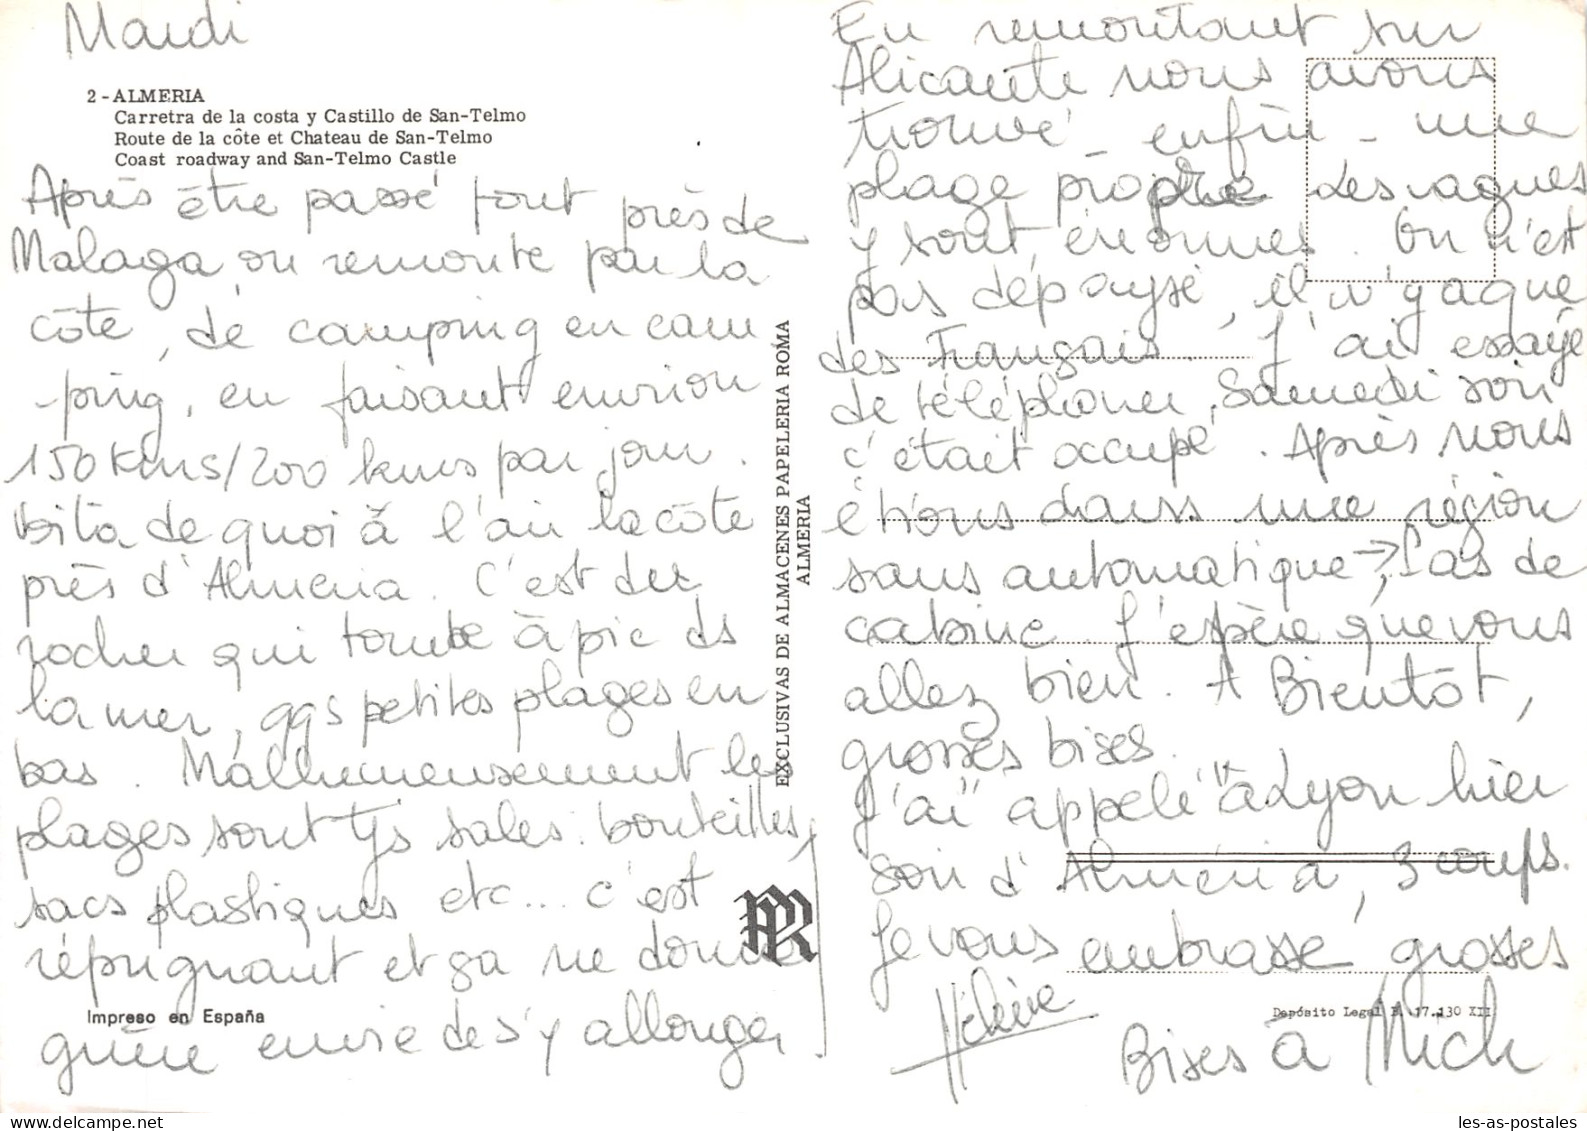 Mardi
2 - ALMERIA
Carretra de la costa y Castillo de San-Telmo
Route de la côte et Chateau de San-Telmo
Coast roadway and San-Telmo Castle
Après être passé tout près de
Malaga on remonte par la
côte, de camping en cam
-ping, en faisant environ
150 Kms/200 kms par jour.
Voilà de quoi à l'air la côte
près d'Almeria. C'est du
rocher qui tombe à pic ds
la mer, qqs petites plages en
bas. Malheureusement les
plages sont tjs sales: bouteilles,
sacs plastiques etc... c'est
répugnant et ça ne donne
guère envie de s'y allonger
Impreso en España
EXCLUSIVAS DE ALMACENES PAPELERIA ROMA
ALMERIA
En remontant sur
Alicante nous avons
trouvé - enfin - une
plage propre les vagues
y sont énormes. On n'est
pas dépaysé, il n'y a que
des Français. J'ai essayé
de téléphoner, Samedi soir
c'était occupé. Après nous
étions dans une région
sans automatique → Pas de
cabine. J'espère que vous
allez bien. A Bientôt,
grosses bises.
J'ai "appelé" à Lyon hier
soir d'Almeria, 3 coups.
Je vous embrasse grosses
Hélène
Depósito Legal B. 17.130 XII
Bises à Mich
les-as-postales